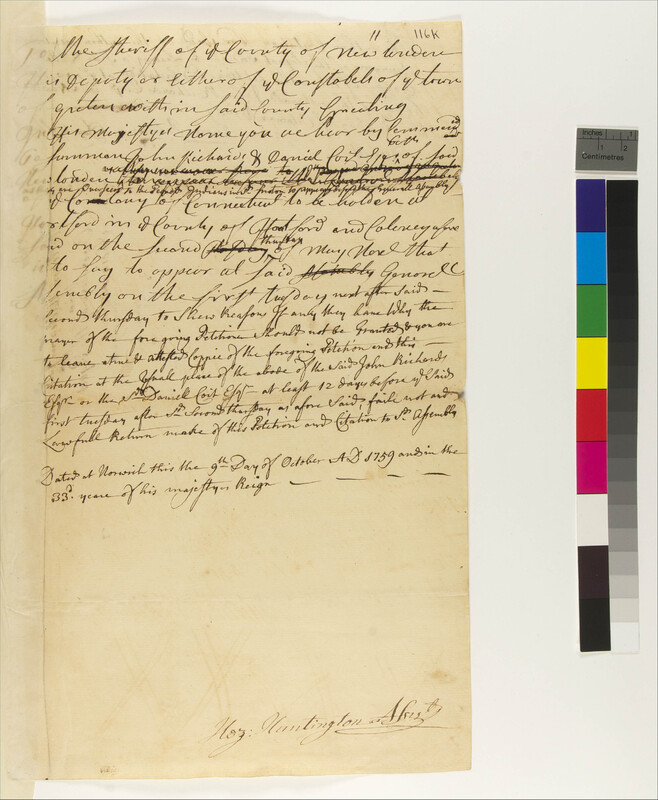 116K
To the Sheriff of ye County of New london
is Deputy or Either of ye Constabels of ye town
groton with in said County Greeting
His Majestyes Name you are hear by Commanded
Summon John Richards & Daniel Coit Esqrs both of said
london
Indians in sd
Colony of Connecticut to be holden at
rtford in ye County of Hartford and Coleney afore
id on the second thursday of May Next that
is to say to appear at said Assembly General
sembly on the first tuesday next after said
second thursday to Shew Reasons If any they have Why the
prayer of the fore going Petition Should not be Granted & you are
to leave a true & attested Coppie of the foregoing Petition and this
Citation at the Usuall place of the abode of the Said John Richards
Esqr or the sd Daniel Coit Esqr at least 12 days before ye Said
first tuesday after sd Second thursday as afore Said, faile not and
Lawfull Return make of this Petition and Citation to sd Assembly
Dated at Norwich this the 9th Day of October A D 1759 and in the
33d yeare of his majestyes Reign
Hez: Huntington Assist
Inches
1
2
Centimetres